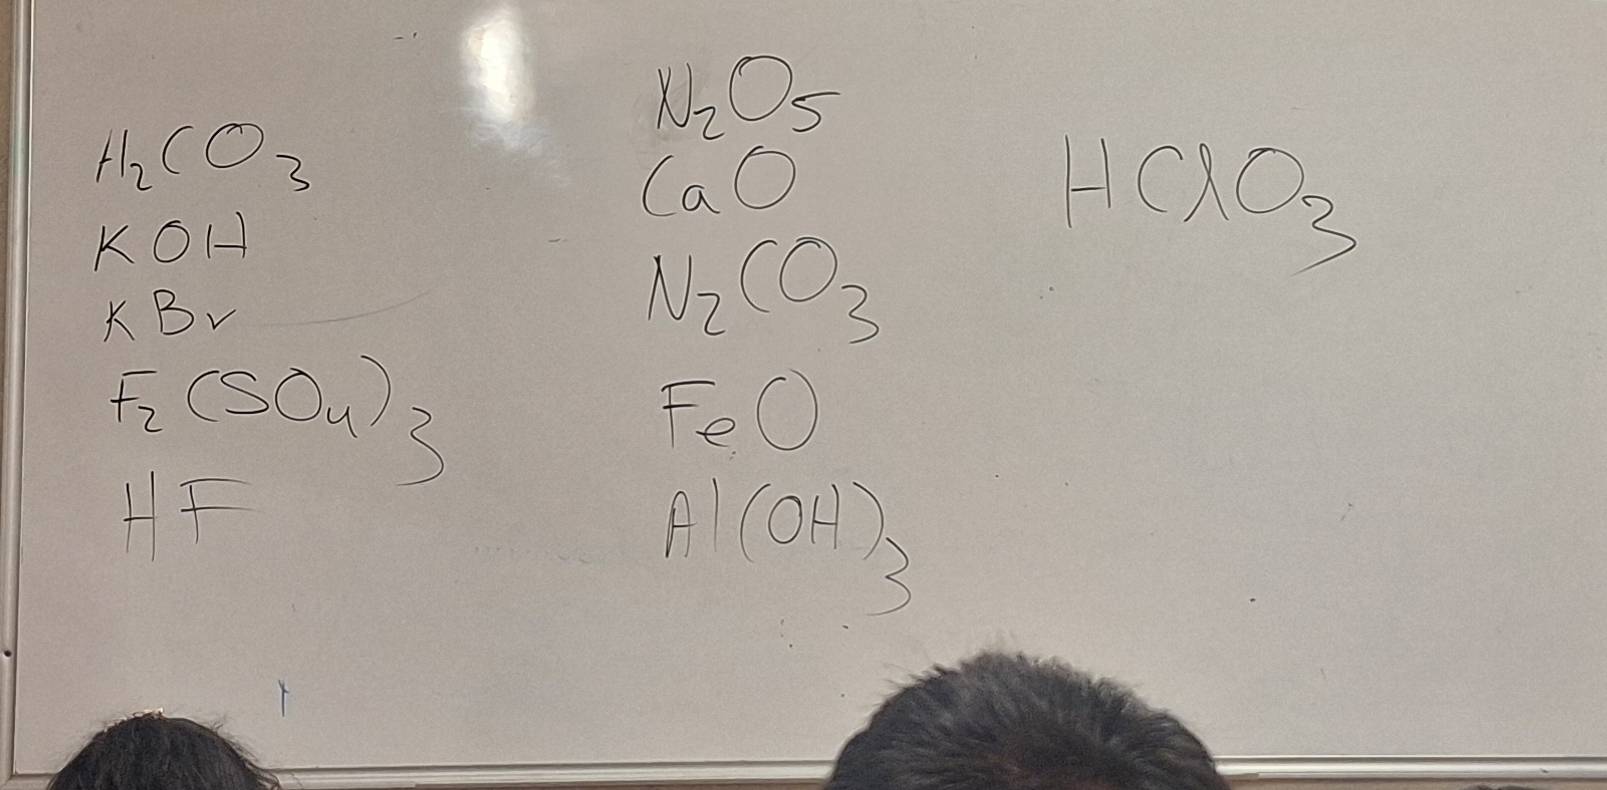 H₂CO₃
KOH
KBr
F₂(SO₄)₃
HF
N₂O₅
CaO
N₂CO₃
FeO
Al(OH)₃
HClO₃